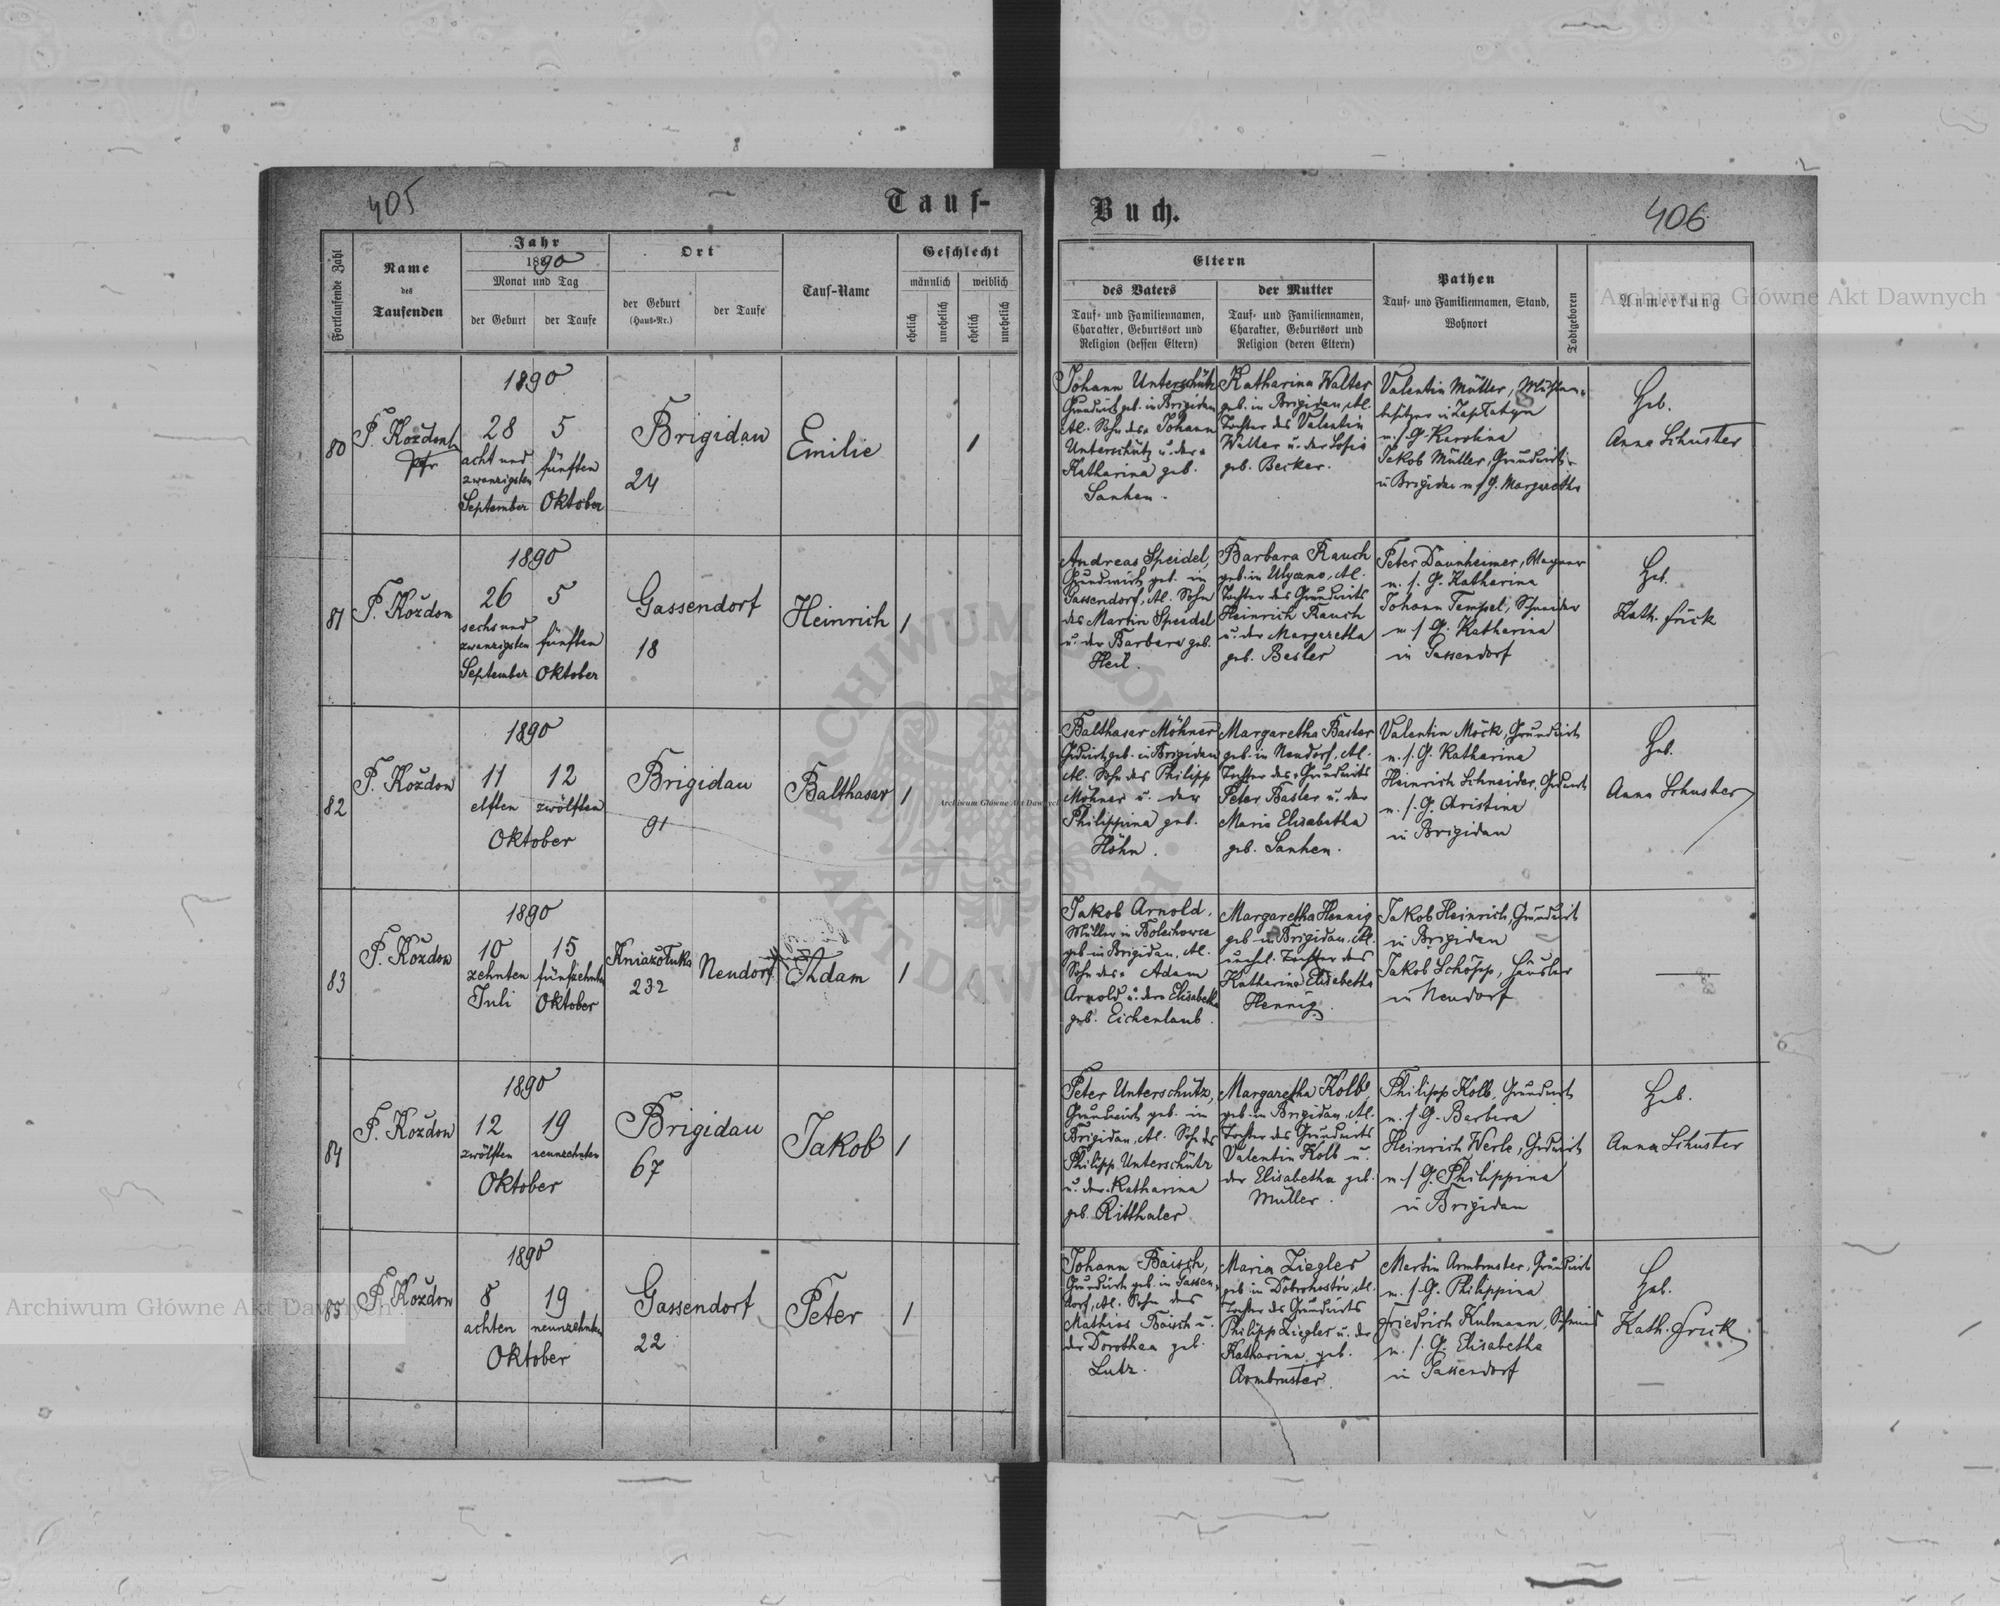 405
Tauf-
Fortlaufende Zahl
Name
des
Taufenden
Jahr
1890
Monat und Tag
der Geburt
der Taufe
Ort
der Geburt
(Haus-Nr.)
der Taufe
Tauf-Name
Geschlecht
männlich
weiblich
ehelich
unehelich
ehelich
unehelich
80
P. Kożdon
Pfr
1890
28
acht und
zwanzigsten
September
5
fünften
Oktober
Brigidau
24
Emilie
1
81
P. Kożdon
1890
26
sechsund
zwanzigsten
September
5
fünften
Oktober
Gassendorf
18
Heinrich
1
82
P. Kożdon
1890
11
elften
12
zwölften
Oktober
Brigidau
91
Balthasar
1
83
P. Kożdon
1890
10
zehnten
Juli
15
fünfzehnten
Oktober
Kniazołuka
232
Neudorf
Adam
1
84
P. Kożdon
1890
12
zwölften
19
neunzehnten
Oktober
Brigidau
67
Jakob
1
85
P. Kożdon
1890
8
achten
19
neunzehnten
Oktober
Gassendorf
22
Peter
1
Buch.
406
Eltern
des Vaters
Tauf- und Familiennamen,
Charakter, Geburtsort und
Religion (dessen Eltern)
der Mutter
Tauf- und Familiennamen,
Charakter, Geburtsort und
Religion (deren Eltern)
Pathen
Tauf- und Familiennamen, Stand,
Wohnort
Todtgeboren
Anmerkung
Johann Unterschütz
Grundwirt geb. in Brigidau
Al. Sohn des Johann
Unterschütz u. der
Katharina geb.
Sanhen.
Katharina Walter
geb. in Brigidau, Al.
Tochter des Valentin
Walter u. der Sofie
geb. Becker.
Valentin Müller, Mühlen-
besitzer in
m./G. Karolina
Jakob Müller, Grundwirt
in Brigidau m/G. Margaretha
Heb.
Anna Schuster
Andreas Speidel,
Grundwirt geb. in
Gassendorf, Al. Sohn
des Martin Speidel
u. der Barbara geb.
Heil.
Barbara Rauch
geb. in Ugarno, Al.
Tochter des Grundwirts
Heinrich Rauch
u. der Margaretha
geb. Besler
Peter Daunheimer, Wagner
m./G. Katharina
Johann Tempel, Schneider
m/G. Katharina
in Gassendorf
Heb.
Kath. Frick
Balthasar Möhner
Gdwirt geb. in Brigidau
Al. Sohn des Philipp
Möhner u. der
Philippina geb.
Höhn.
Margaretha Basler
geb. in Neudorf, Al.
Tochter des Grundwirts
Peter Basler u. der
Maria Elisabetha
geb. Sanhen.
Valentin Möck, Grundwirt
m./G. Katharina
Heinrich Schneider, Gdwirt
m./G. Christina
in Brigidau
Heb.
Anna Schuster
Jakob Arnold,
Müller in Bolechowce
geb. in Brigidau, Al.
Sohn des Adam
Arnold u. der Elisabeth
geb. Eichenlaub.
Margaretha Hennig
geb. in Brigidau, Al.
unehl. Tochter der
Katharina Elisabetha
Hennig.
Jakob Heinrich, Grundwirt
in Brigidau
Jakob Schöpp, Häusler
in Neudorf
Peter Unterschütz,
Grundwirt geb. in
Brigidau, Al. Sohn des
Philipp Unterschütz
u. der Katharina
geb. Ritthaler
Margaretha Kolb,
geb. in Brigidau, Al.
Tochter des Grundwirts
Valentin Kolb u.
der Elisabetha geb.
Müller.
Philipp Kolb, Grundwirt
m/G. Barbara
Heinrich Werle, Grdwirt
m/G. Philippina
in Brigidau
Heb.
Anna Schuster
Johann Baisch,
Grundwirt geb. in Gassen-
dorf, Al. Sohn des
Mathias Baisch u.
der Dorothea geb.
Lutz.
Maria Ziegler
geb. in Dobrohostów, Al.
Tochter des Grundwirts
Philipp Ziegler u. der
Katharina geb.
Armbruster.
Martin Armbruster, Grundwirt
m./G. Philippina
Friedrich Kulmann, Schmied
m./G. Elisabetha
in Gassendorf
Heb.
Kath. Frick
Archiwum Główne Akt Dawnych
Archiwum Główne Akt Dawnych
Archiwum Główne Akt Dawnych